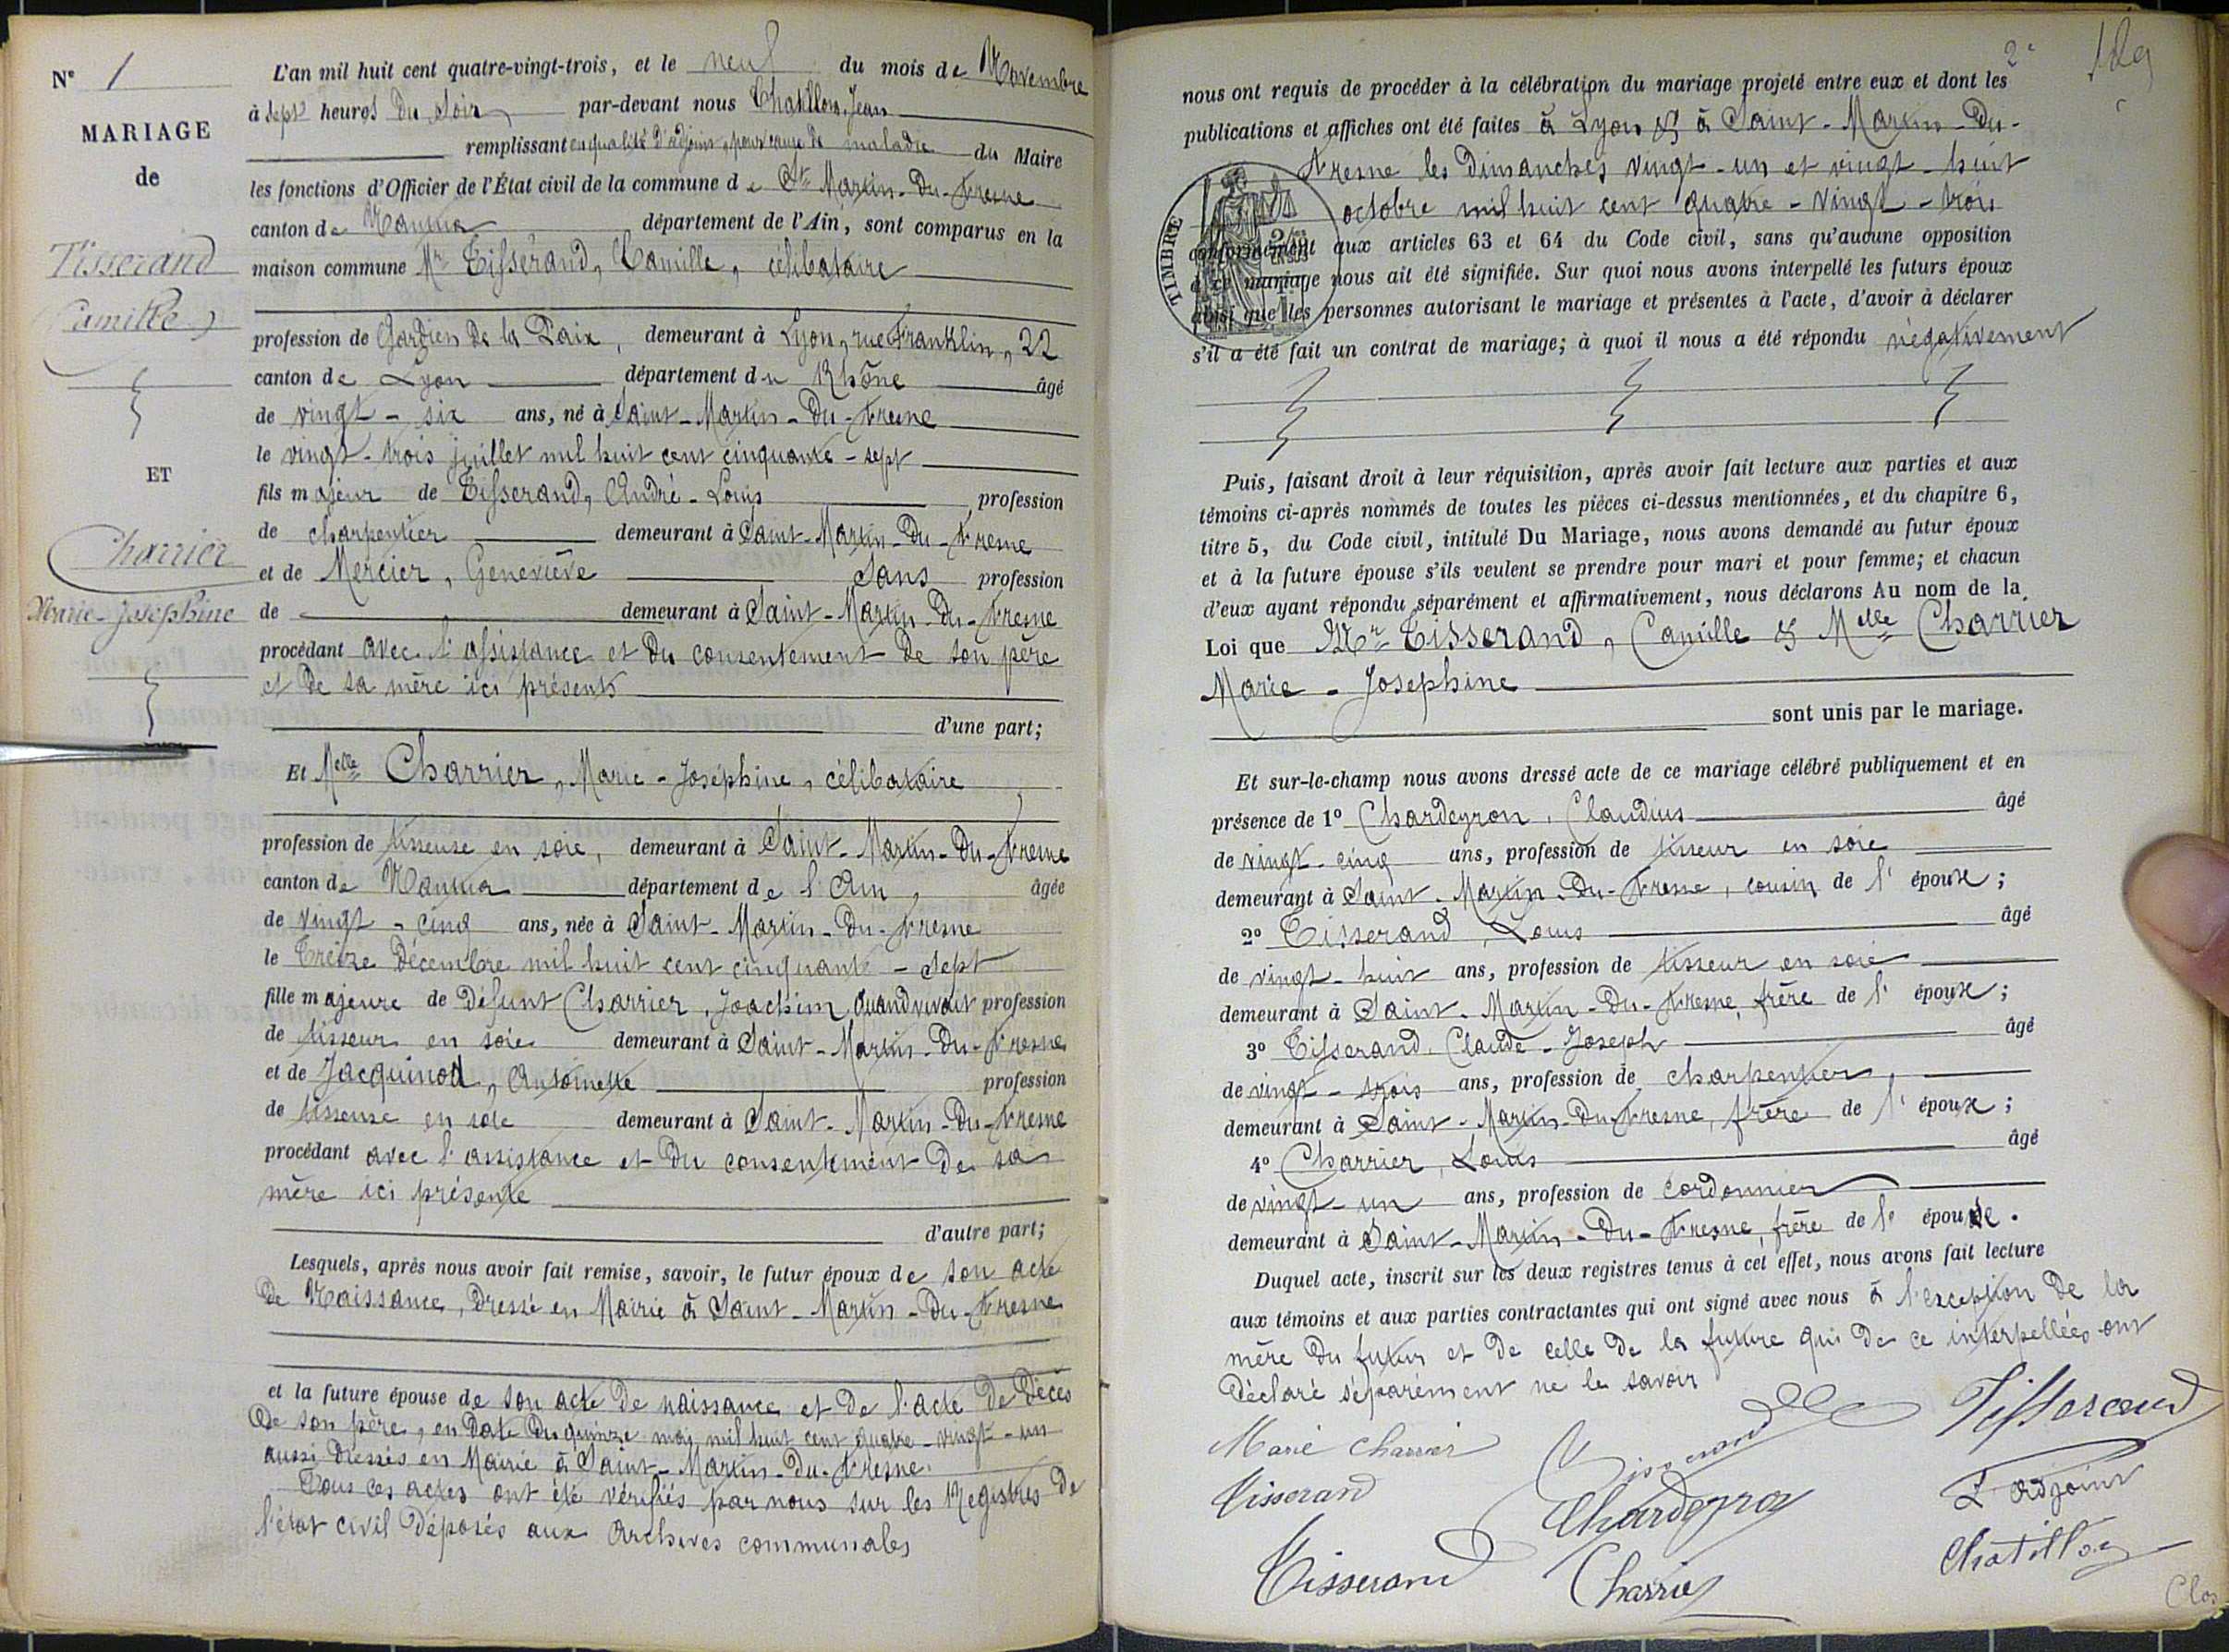 N° 1
MARIAGE
de
Tisserand
Camille,
ET
Charrier
Marie-Joséphine
L'an mil huit cent quatre-vingt-trois, et le neuf du mois de Novembre
à sept heures du soir, par-devant nous Chatillon, Jean
remplissant en qualité d'adjoint, pour cause de maladie du Maire
les fonctions d'Officier de l'État civil de la commune de St Martin-du-Fresne
canton de Nantua département de l'Ain, sont comparus en la
maison commune Mr Tisserand, Camille, célibataire
profession de Gardien de la Paix, demeurant à Lyon, rue Franklin, 22
canton de Lyon département du Rhône âgé
de vingt-six ans, né à Saint-Martin-du-Fresne
le vingt-trois juillet mil huit cent cinquante-sept
fils majeur de Tisserand, André-Louis profession
de charpentier demeurant à Saint-Martin-du-Fresne
et de Mercier, Geneviève Sans profession
de demeurant à Saint-Martin-du-Fresne
procédant avec l'assistance et du consentement de son père
et de sa mère ici présents
d'une part;
Et Melle Charrier, Marie-Joséphine, célibataire
profession de tisseuse en soie, demeurant à Saint-Martin-du-Fresne
canton de Nantua département de l'Ain, âgée
de vingt-cinq ans, née à Saint-Martin-du-Fresne
le treize Décembre mil huit cent cinquante-sept
fille majeure de défunt Charrier, Joachim, quand vivait profession
de tisseur en soie demeurant à Saint-Martin-du-Fresne
et de Jacquinod, Antoinette profession
de tisseuse en soie demeurant à Saint-Martin-du-Fresne
procédant avec l'assistance et du consentement de sa
mère ici présente
d'autre part;
Lesquels, après nous avoir fait remise, savoir, le futur époux de son acte
de Naissance, dressé en Mairie à Saint-Martin-du-Fresne
et la future épouse de son acte de naissance et de l'acte de décès
de son père, en date du quinze mai mil huit cent quatre-vingt-un
aussi dressés en Mairie à Saint-Martin-du-Fresne.
Tous ces actes ont été vérifiés par nous sur les Registres de
l'état civil déposés aux Archives communales
2e
129
nous ont requis de procéder à la célébration du mariage projeté entre eux et dont les
publications et affiches ont été faites à Lyon & à Saint-Martin-du-
Fresne les dimanches vingt-un et vingt-huit
octobre mil huit cent quatre-vingt-trois
TIMBRE
conformément aux articles 63 et 64 du Code civil, sans qu'aucune opposition
à ce mariage nous ait été signifiée. Sur quoi nous avons interpellé les futurs époux
ainsi que les personnes autorisant le mariage et présentes à l'acte, d'avoir à déclarer
s'il a été fait un contrat de mariage; à quoi il nous a été répondu négativement
Puis, faisant droit à leur réquisition, après avoir fait lecture aux parties et aux
témoins ci-après nommés de toutes les pièces ci-dessus mentionnées, et du chapitre 6,
titre 5, du Code civil, intitulé Du Mariage, nous avons demandé au futur époux
et à la future épouse s'ils veulent se prendre pour mari et pour femme; et chacun
d'eux ayant répondu séparément et affirmativement, nous déclarons Au nom de la
Loi que Mr Tisserand, Camille & Melle Charrier
Marie-Josephine
sont unis par le mariage.
Et sur-le-champ nous avons dressé acte de ce mariage célébré publiquement et en
présence de 1° Chardeyron, Claudius âgé
de vingt-cinq ans, profession de tisseur en soie
demeurant à Saint-Martin-du-Fresne, cousin de l'époux;
2° Tisserand, Louis âgé
de vingt-huit ans, profession de tisseur en soie
demeurant à Saint-Martin-du-Fresne, frère de l'époux;
3° Tisserand, Claude-Joseph âgé
de vingt-trois ans, profession de charpentier,
demeurant à Saint-Martin-du-Fresne, frère de l'époux;
4° Charrier, Louis âgé
de vingt-un ans, profession de cordonnier
demeurant à Saint-Martin-du-Fresne, frère de l'épouse.
Duquel acte, inscrit sur les deux registres tenus à cet effet, nous avons fait lecture
aux témoins et aux parties contractantes qui ont signé avec nous à l'exception de la
mère du futur et de celle de la future qui de ce interpellées ont
déclaré séparément ne le savoir
Marie Charrier Tisserand Tisserand
Tisserand Chardeyron L'adjoint
Tisserand Charrier Chatillon
Clos